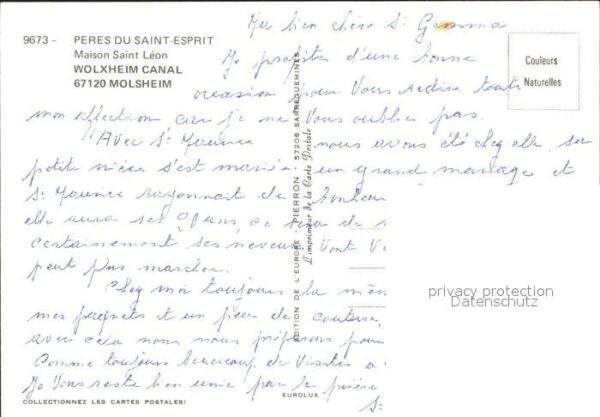 9673 - PERES DU SAINT-ESPRIT
Maison Saint Léon
WOLXHEIM CANAL
67120 MOLSHEIM
Couleurs
Naturelles
Ma bien chère Sr Gemma
Je profite d'une bonne
occasion pour Vous redire toute
mon affection car je ne Vous oublie pas.
Avec Sr Maurice nous avons été chez elle, sa
petite nièce s'est mariée un grand mariage et
Sr Maurice rayonnait de bonheur
elle aura ses ans, ce sera
certainement ses neveux Vont
peut plus marcher.
Chez moi toujours la
mes paquets et un peu de couture,
avec cela nous nous préparons pour
Comme toujours beaucoup de Visites
Je Vous reste bien unie par la prière
Sr
EDITION DE L'EUROPE - PIERRON - 57206 SARREGUEMINES
L'imprimeur de la Carte Postale
privacy protection
Datenschutz
COLLECTIONNEZ LES CARTES POSTALES!
EUROLUX